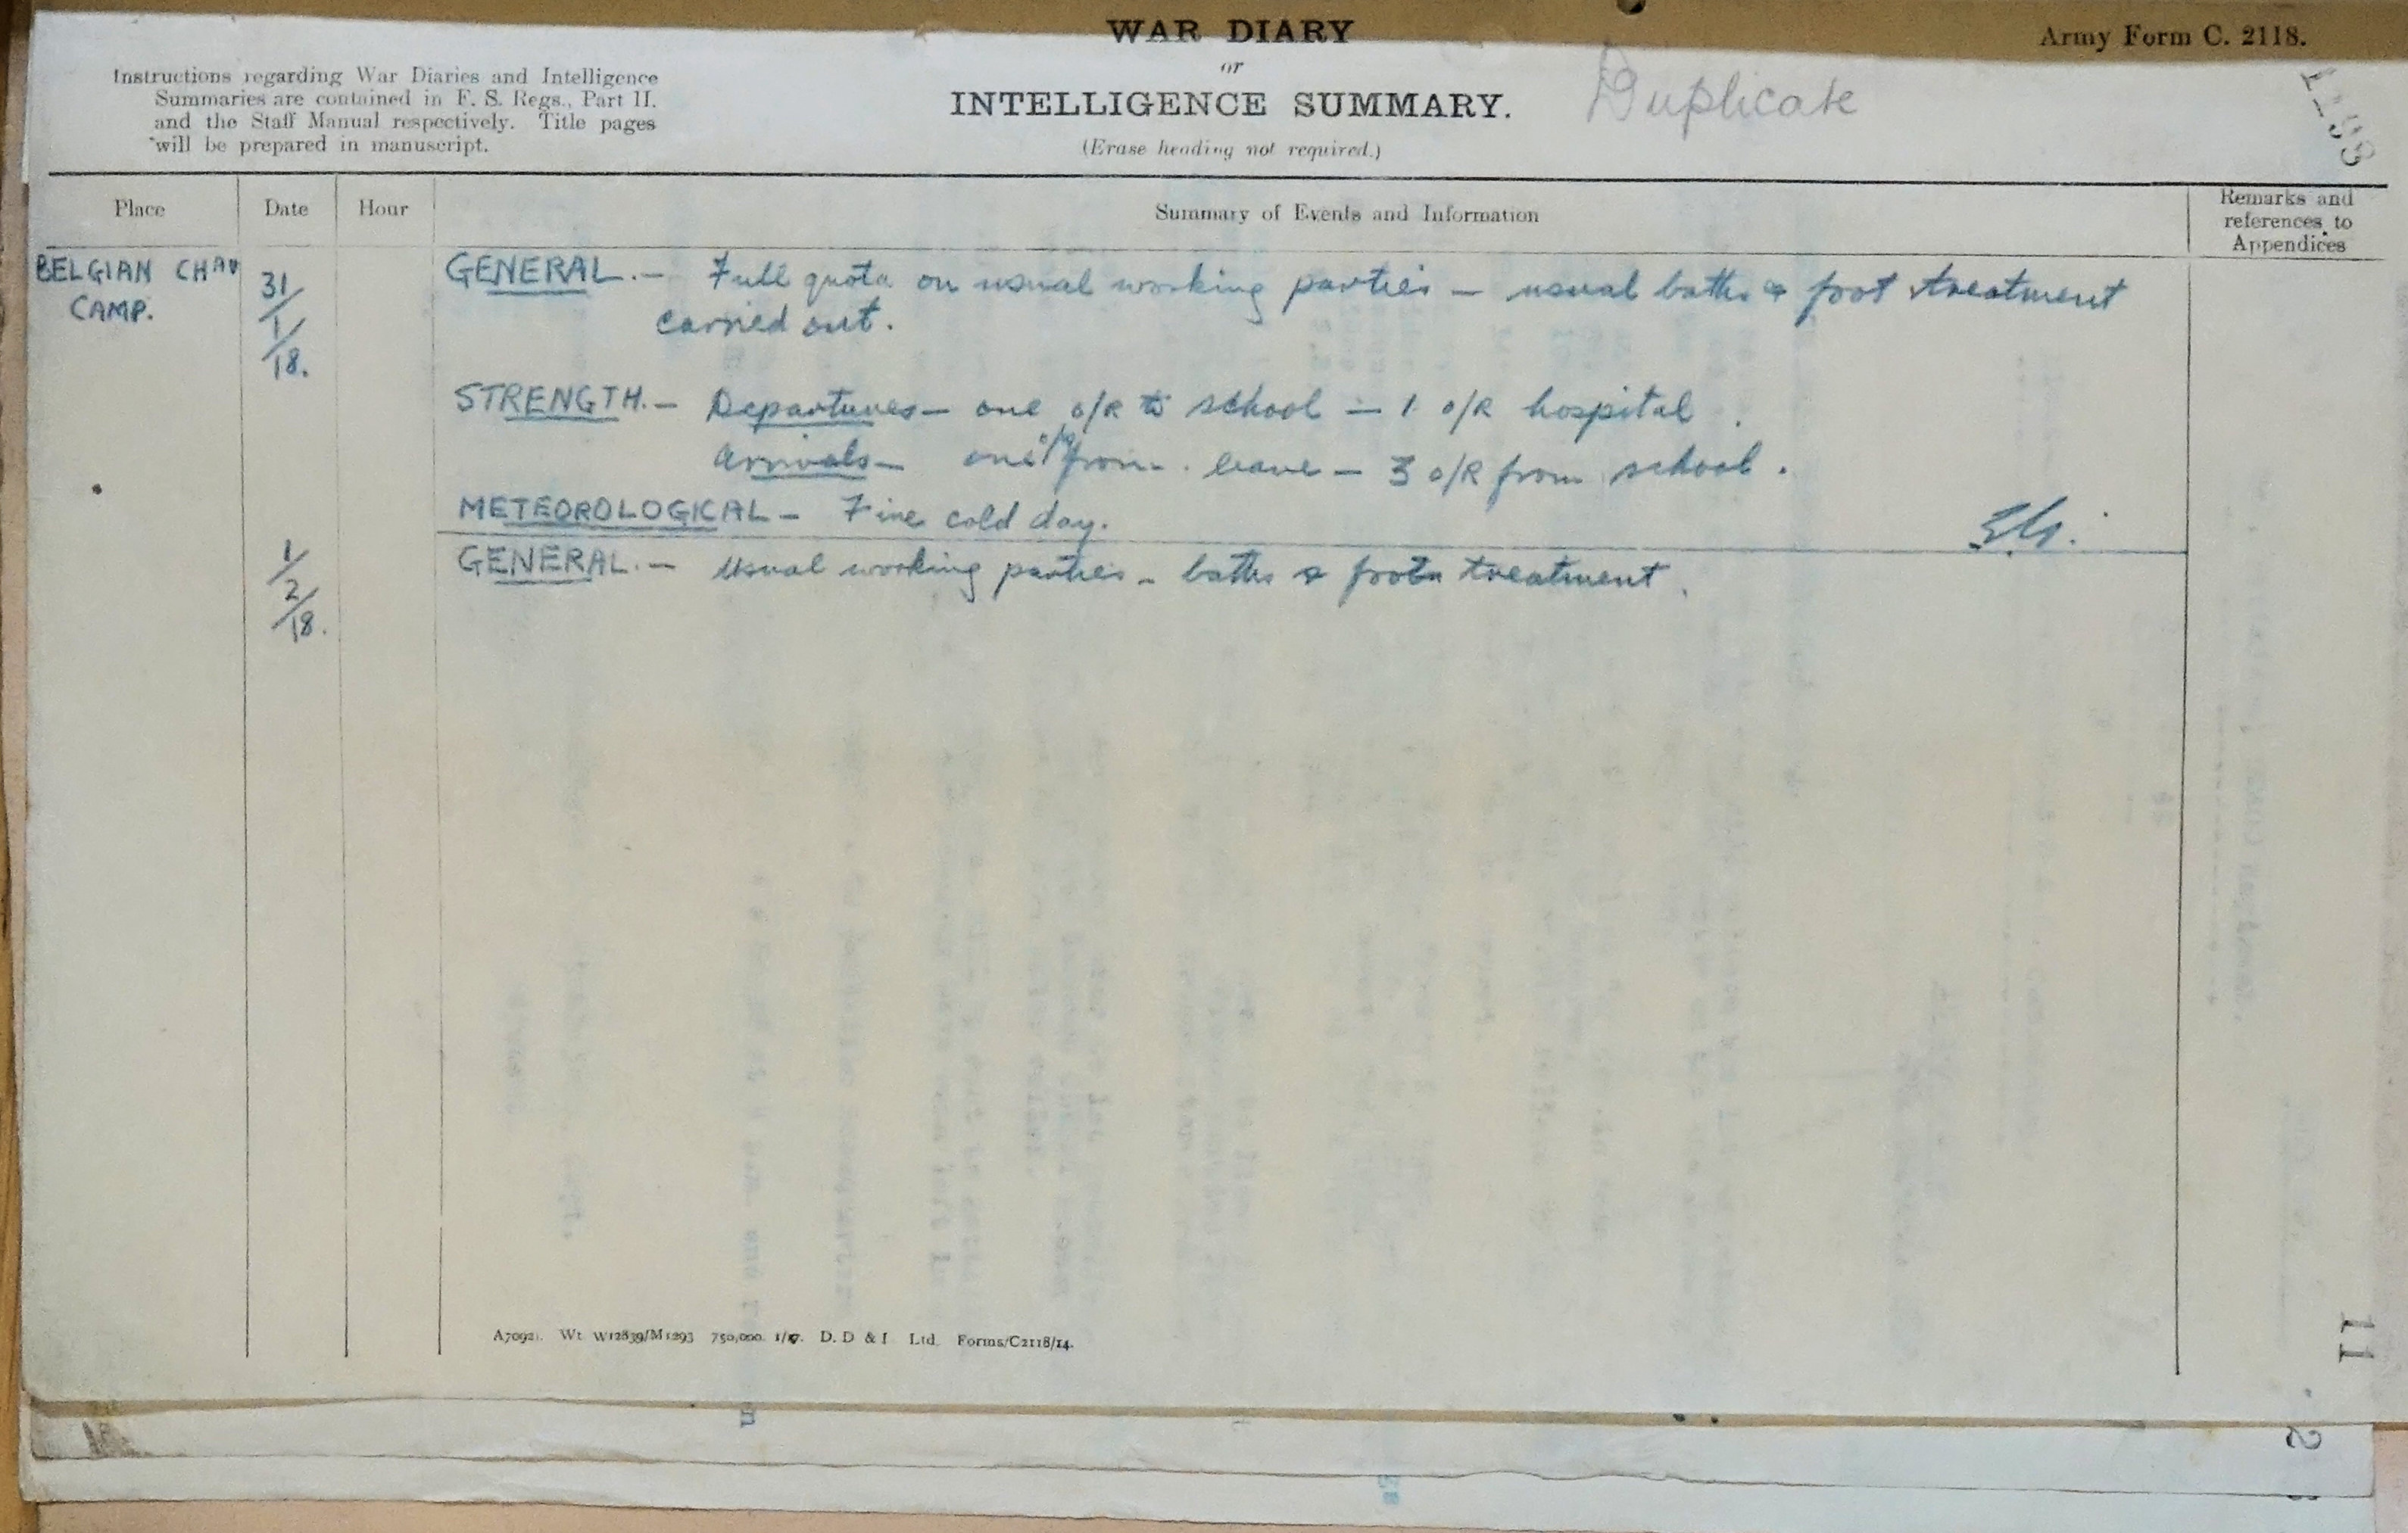 WAR DIARY
Army Form C. 2118.
or
INTELLIGENCE SUMMARY.
Duplicate
(Erase heading not required.)
Instructions regarding War Diaries and Intelligence
Summaries are contained in F. S. Regs., Part II.
and the Staff Manual respectively. Title pages
will be prepared in manuscript.
Place
Date
Hour
Summary of Events and Information
Remarks and
references to
Appendices
BELGIAN CHAU
CAMP.
31/
1/
18.
GENERAL.— Full quota on usual working parties — usual baths & foot treatment
carried out.
STRENGTH.— Departures— one o/R to school — 1 o/R hospital.
Arrivals— one o/R from leave — 3 o/R from school.
METEOROLOGICAL— Fine cold day.
1/
2/
18.
GENERAL.— Usual working parties — baths & foot treatment.
A7092. Wt W12839/M1293 750,000. 1/17. D. D & L Ltd. Forms/C2118/14.
11
2